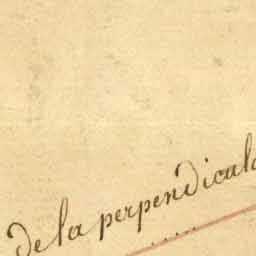 de la perpendicula